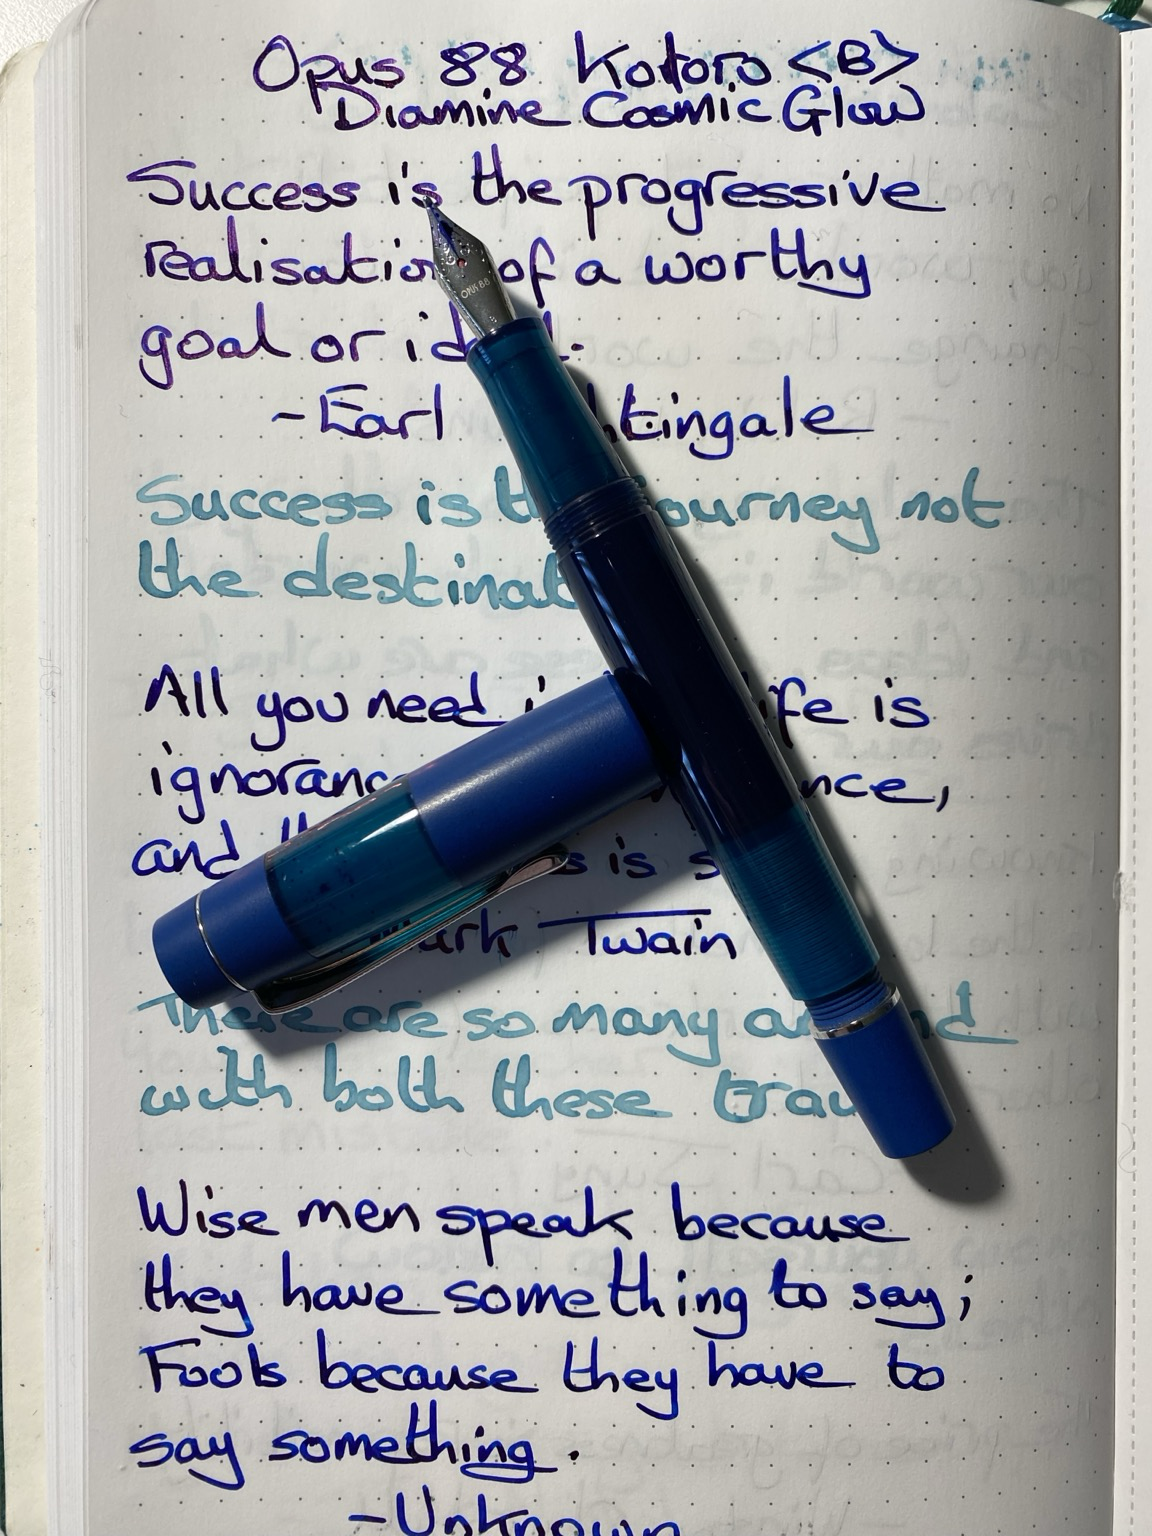 Opus 88 Koloro <B>
Diamine Cosmic Glow
Success is the progressive
realisation of a worthy
goal or
-Earl Nightingale
OPUS 88
Success is journey not
the
All you need life is
ignorance
and is
Mark Twain
There are so many
with both these
Wise men speak because
they have something to say;
Fools because they have to
say something.
-Unknown